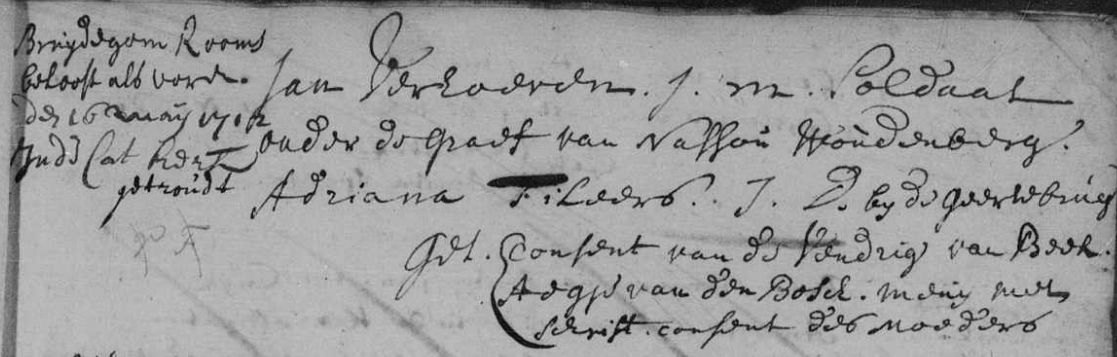 Bruydegom Rooms
belooft als vore.
den 16 May 1712
In de Cat kerk
getroudt
Jan Verhoeven. J. m. Soldaat
onder de Graef van Nassou Woudenberg.
Adriana Filders. J. D. by de Geertebrug
Get. Consent van de Vendrig van Beek.
Aegje van den Bosch. meuy met
schrift. consent des Moeders